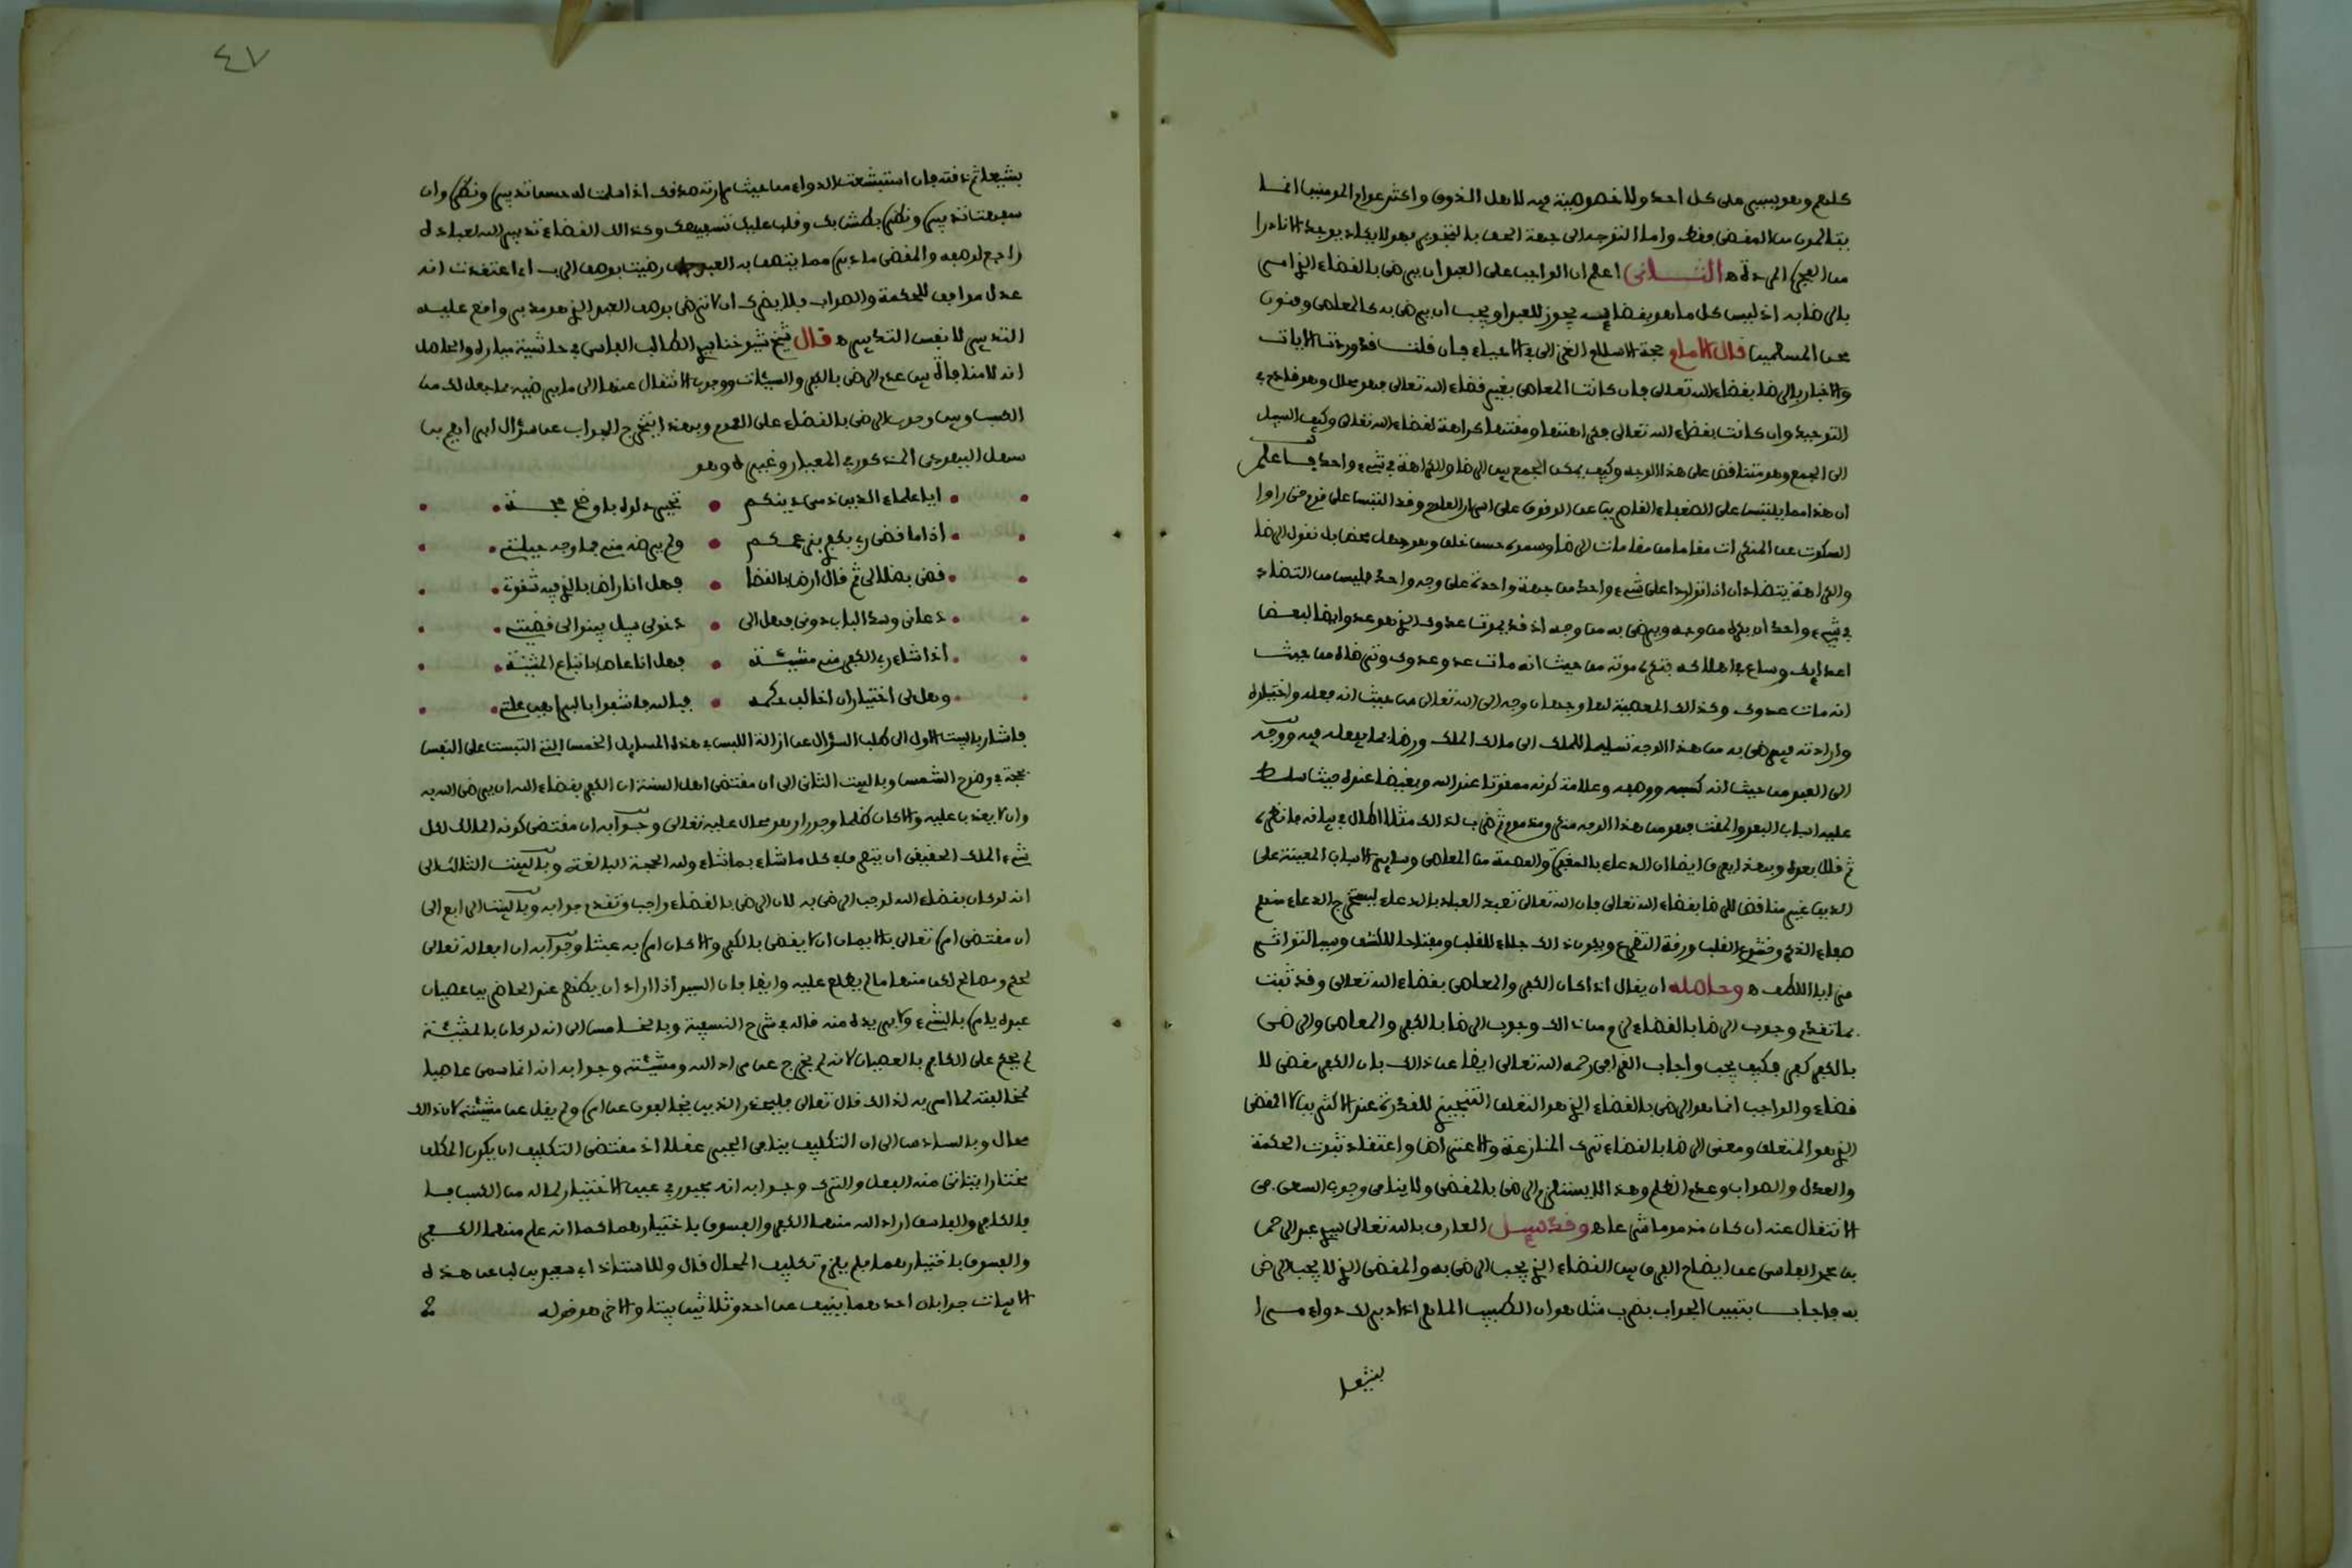 كلهم وهو يسير على كل احد ولا خصوصية فيه لاهل الذوق واكثر عوام المومنين انما
يتالمون من المقضى فقط واما التوجه الى جهة الحق بالتجويز فهو لا يكاد يوجد الا نادرا
من الفجرة المردة ه الثانى اعلم ان الواجب على العبد ان يرضى بالقضاء الذى امر
بالرضا به اذ ليس كل ما هو بقضايه يجوز للعبد او يجب ان يرضى به كالمعاصى وفنون
محن المسلمين قال الامام حجة الاسلام الغزالى فى الاحياء فان قلت فقد وردت الايات
والاخبار بالرضا بقضاء الله تعالى فان كانت المعاصى بغير قضاء الله تعالى فهو محال وهو قادح فى
التوحيد وان كانت بقضاء الله تعالى فكراهتها ومقتها كراهة لقضاء الله تعالى وكيف السبيل
الى الجمع وهو متناقض على هذا الوجه وكيف يمكن الجمع بين الرضا والكراهة فى شىء واحد فاعلم
ان هذا مما يلتبس على الضعفاء القاصرين عن الوقوف على اسرار العلوم وقد التبس على قوم حتى راوا
السكوت عن المنكرات مقاما من مقامات الرضا وسموه حسن خلق وهو جهل محض بل نقول الرضا
والكراهة يتضادان اذا تواردا على شىء واحد من جهة واحدة على وجه واحد فليس من التضاد
فى شىء واحد ان يكره من وجه ويرضى به من وجه اذ قد يموت عدوك الذى هو عدو ايضا لبعض
اعدايك وساع فى اهلاكه فتكره موته من حيث انه مات عدو عدوك وترضاه من حيث
انه مات عدوك وكذلك المعصية لها وجهان وجه الى الله تعالى من حيث انه فعله واختياره
وارادته فيرضى به من هذا الوجه تسليما للملك الى مالك الملك ورضا بما يفعله فيه ووجه
الى العبد من حيث انه كسبه ووصفه وعلامة كونه ممقوتا عند الله وبغيضا عنده حيث سلط
عليه اسباب البعد والمقت فهو من هذا الوجه منكر ومذموم ثم ضرب لذلك مثلا اطال فى بيانه فانظره
ثم قال بعده وبهذا يعرف ايضا ان الدعاء بالمغفرة والعصمة من المعاصى وساير الاسباب المعينة على
الدين غير مناقض للرضا بقضاء الله تعالى فان الله تعالى تعبد العباد بالدعاء ليستخرج الدعاء منهم
صفاء الذكر وخشوع القلب ورقة التضرع ويكون ذلك جلاء للقلب ومفتاحا للكشف وسببا لتواتر
مزايا اللطف ه وحاصله ان يقال اذا كان الكفر والمعاصى بقضاء الله تعالى وقد ثبت
بما تقدم وجوب الرضا بالقضاء لزم من ذلك وجوب الرضا بالكفر والمعاصى والرضى
بالكفر كفر فكيف يجب واجاب القرافى رحمه الله تعالى ايضا عن ذلك بان الكفر مقضى لا
قضاء والواجب انما هو الرضى بالقضاء الذى هو التعلق التنجيزى للقدرة عند الاكثرين لا المقضى
الذى هو المتعلق ومعنى الرضا بالقضاء ترك المنازعة والاعتراض واعتقاد ثبوت الحكمة
والعدل والصواب وعدم الظلم وهذا لا يستلزم الرضى بالمقضى ولا ينافى وجوب السعى فى
الانتقال عنه ان كان مذموما شرعا ه وقد سيل العارف بالله تعالى سيدى عبد الرحمن
بن محمد الفاسى عن ايضاح الفرق بين القضاء الذى يجب الرضى به والمقضى الذى لا يجب الرضى
به فاجاب بتبيين الجواب بضرب مثل هو ان الطبيب الماهر اذا دبر لك دواء مرا
بشعا
٤٧
بشعا ثم ذقته فان استبشعت الدواء من حيث مرارته صدقك اذا سلمت له حسن تدبيره ونظره وان
سفهت تدبيره ونظره بطش بك وقلب عليك تسفيهك وكذلك القضاء تدبير الله لعباده
راجع لوصفه والمقضى ما دبره مما يتصف به العبد فان رضيت بوصف الرب اى اعتقدت انه
عدل موافق للحكمة والصواب فلا يضرك ان لا ترضى بوصف العبد الذى هو مدبر واقع عليه
التدبير لا نفس التدبير ه قال شيخ شيوخنا سيدى الطالب الفاسى فى حاشية ميارة والحاصل
انه لا منافاة بين عدم الرضى بالكفر والسيئات ووجوب الانتقال عنها الى ما يرضيه بما جعل لك من
الكسب وبين وجوب الرضى بالقضاء على العموم وبهذا يتخرج الجواب عن سؤال ابراهيم بن
سهل اليهودى المذكور فى المعيار وغيره وهو
ايا علماء الدين ذمى دينكم • تحير دلوه باوضح حجة
اذا ما قضى ربى بكفرى بزعمكم • ولم يرضه منى فما وجه حيلتى
قضى بضلالى ثم قال ارض بالقضا • فهل انا راض بالذى فيه شقوتى
دعانى وسد الباب دونى فهل الى • دخولى سبيل بينوا لى قضيتى
اذا شاء ربى الكفر منى مشيئة • فهل انا عاص باتباع المشيئة
وهل لى اختيار ان اخالف حكمه • فبالله فاشفوا بالبراهين علتى
فاشار بالبيت الاول الى طلب السؤال عن ازالة اللبس فى هذه المسايل الخمس التى التبست على النفس
بحجة فى وضوح الشمس وبالبيت الثانى الى ان مقتضى اهل السنة ان الكفر بقضاء الله ان يرضى الله به
وان لا يعذب عليه والا كان ظلما وجورا وهو محال عليه تعالى وجوابه ان مقتضى كونه المالك لكل
شىء الملك الحقيقى ان يتصرف فى كل ما شاء بما شاء وله الحجة البالغة وبالبيت الثالث الى
انه لو كان بقضاء الله لوجب الرضى به لان الرضى بالقضاء واجب وتقدم جوابه وبالبيت الرابع الى
ان مقتضى امره تعالى بالايمان ان لا يقضى بالكفر والا كان امره به عبثا وجوابه ان افعاله تعالى
لحكم ومصالح لكن منها ما لم يطلع عليه وايضا فان السيد اذا اراد ان يظهر عند الحاضرين عصيان
عبده يامره بالشىء ولا يريده منه قاله فى شرح النسفية وبالخامس الى انه لو كان بالمشيئة
لم يحكم على الكافر بالعصيان لانه لم يخرج عن مراد الله ومشيئته وجوابه انه انما سمى عاصيا
لمخالفته لما امر به لذلك قال تعالى فليحذر الذين يخالفون عن امره ولم يقل عن مشيئته لان ذلك
محال وبالسادس الى ان التكليف ينافى الجبر عقلا اذ مقتضى التكليف ان يكون المكلف
مختارا يتاتى منه الفعل والترك وجوابه انه مجبور فى عين الاختيار لما له من الكسب فيه
فالكافر والفاسق اراد الله منهما الكفر والفسوق باختيارهما كما انه علم منهما الكفر
والفسوق باختيارهما فلم يلزم تكليف المحال قال وللاستاذ ابى سعيد بن لب عن هذه
الابيات جوابان احدهما ينيف عن احد وثلاثين بيتا والاخر هو قوله